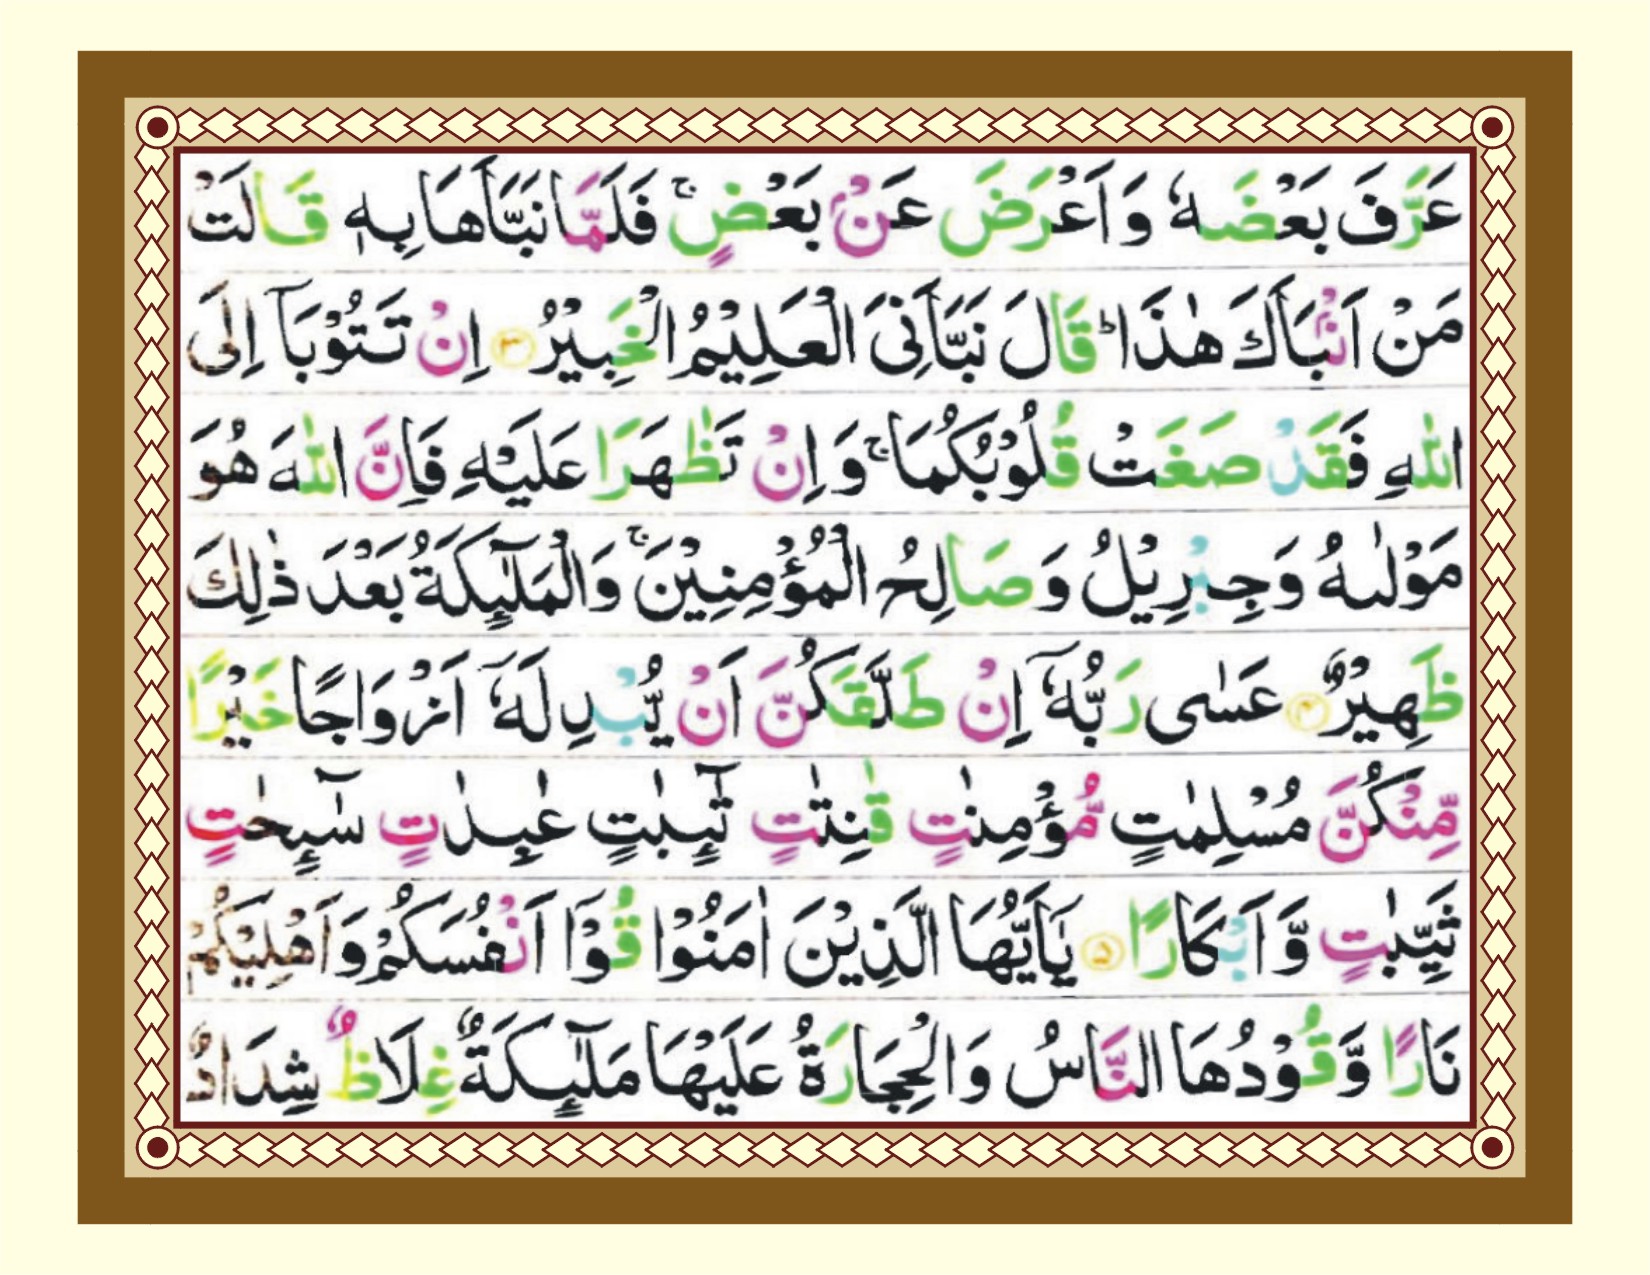 عَرَّفَ بَعْضَهٗ وَ اَعْرَضَ عَنْۢ بَعْضٍ ۚ فَلَمَّا نَبَّاَهَا بِهٖ قَالَتْ
مَنْ اَنْۢبَاَكَ هٰذَا ؕ قَالَ نَبَّاَنِیَ الْعَلِیْمُ الْخَبِیْرُ ۳ اِنْ تَتُوْبَاۤ اِلَی
اللّٰهِ فَقَدْ صَغَتْ قُلُوْبُكُمَا ۚ وَ اِنْ تَظٰهَرَا عَلَیْهِ فَاِنَّ اللّٰهَ هُوَ
مَوْلٰىهُ وَجِبْرِیْلُ وَ صَالِحُ الْمُؤْمِنِیْنَ ۚ وَالْمَلٰٓىِٕكَةُ بَعْدَ ذٰلِكَ
ظَهِیْرٌ ۴ عَسٰی رَبُّهٗۤ اِنْ طَلَّقَكُنَّ اَنْ یُّبْدِلَهٗۤ اَزْوَاجًا خَیْرًا
مِّنْكُنَّ مُسْلِمٰتٍ مُّؤْمِنٰتٍ قٰنِتٰتٍ تٰٓىِٕبٰتٍ عٰبِدٰتٍ سٰٓىِٕحٰتٍ
ثَیِّبٰتٍ وَّ اَبْكَارًا ۵ یٰۤاَیُّهَا الَّذِیْنَ اٰمَنُوْا قُوْۤا اَنْفُسَكُمْ وَ اَهْلِیْكُمْ
نَارًا وَّ قُوْدُهَا النَّاسُ وَ الْحِجَارَةُ عَلَیْهَا مَلٰٓىِٕكَةٌ غِلَاظٌ شِدَادٌ